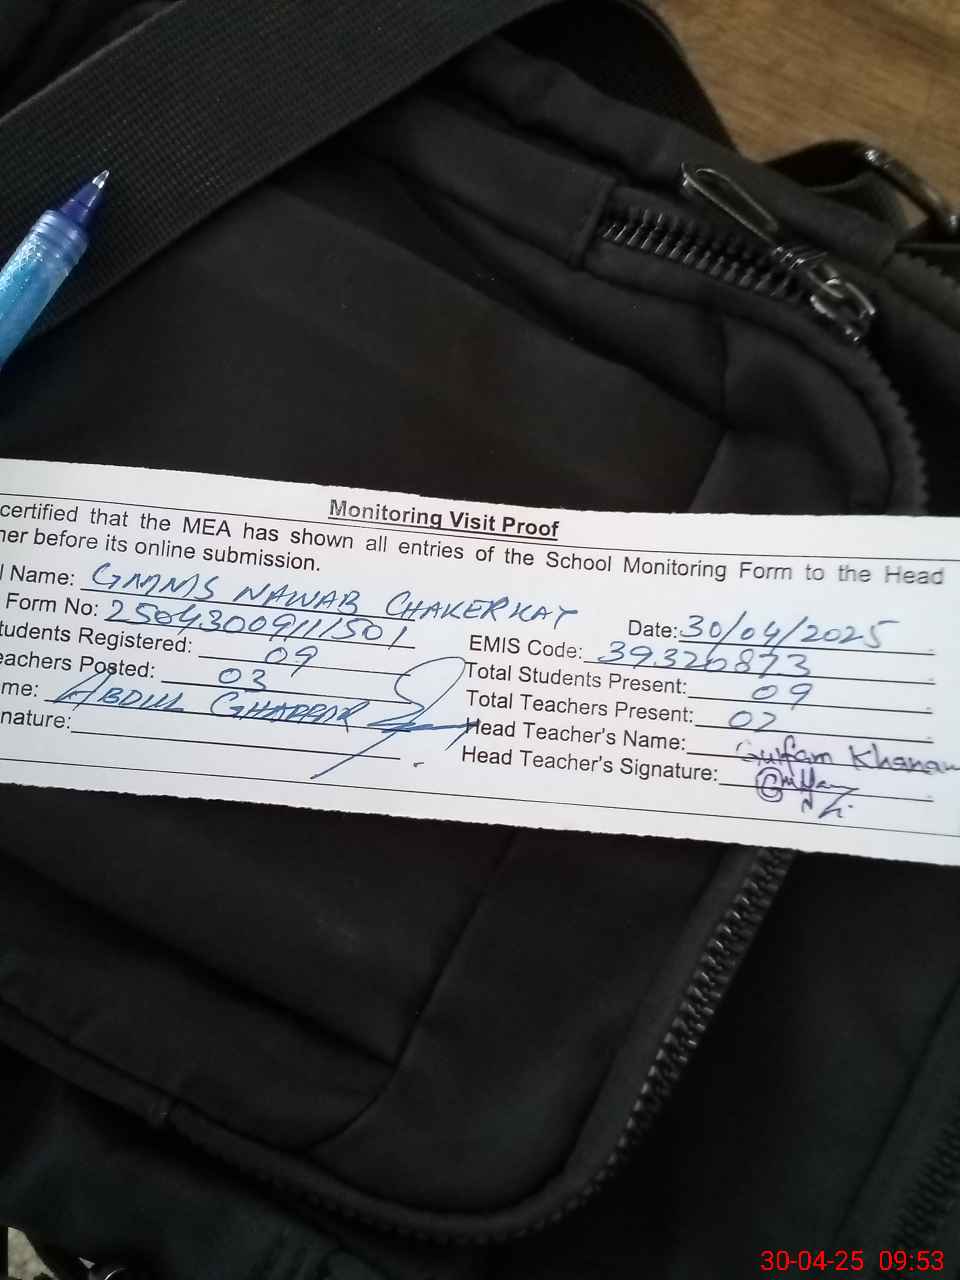 Monitoring Visit Proof
certified that the MEA has shown all entries of the School Monitoring Form to the Head
her before its online submission.
l Name: GMMS NAWAB CHAKERKAY Date: 30/04/2025
Form No: 25043009111501 EMIS Code: 39320873
tudents Registered: 09 Total Students Present: 09
eachers Posted: 03 Total Teachers Present: 02
me: ABDUL GHAFFAR Head Teacher's Name: Gulfam Khanam
nature: Head Teacher's Signature:
30-04-25 09:53